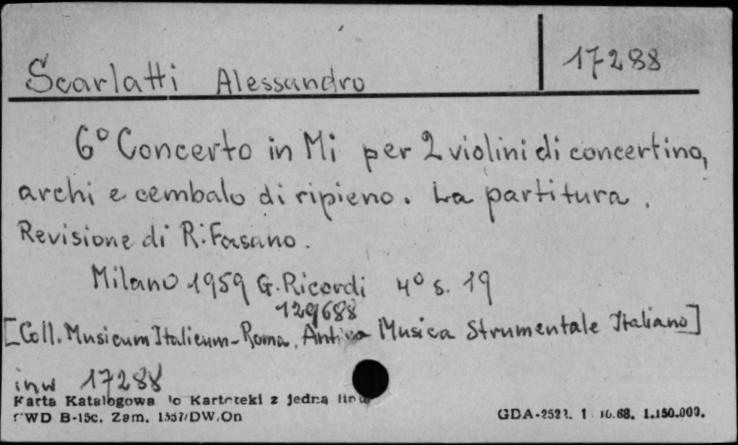 Scarlatti Alessandro 17288
6° Concerto in Mi per 2 violini di concertino,
archi e cembalo di ripieno. La partitura.
Revisione di R. Fasano.
Milano 1959 G. Ricordi 4° s. 19
129688
[Coll. Musicum Italicum - Roma. Antica Musica Strumentale Italiano]
inw 17288
Karta Katalogowa do Kartoteki z jedną
CWD B-15c. Zam. 1557/DW.On GDA-2523. 1 10.68. 1.150.000.